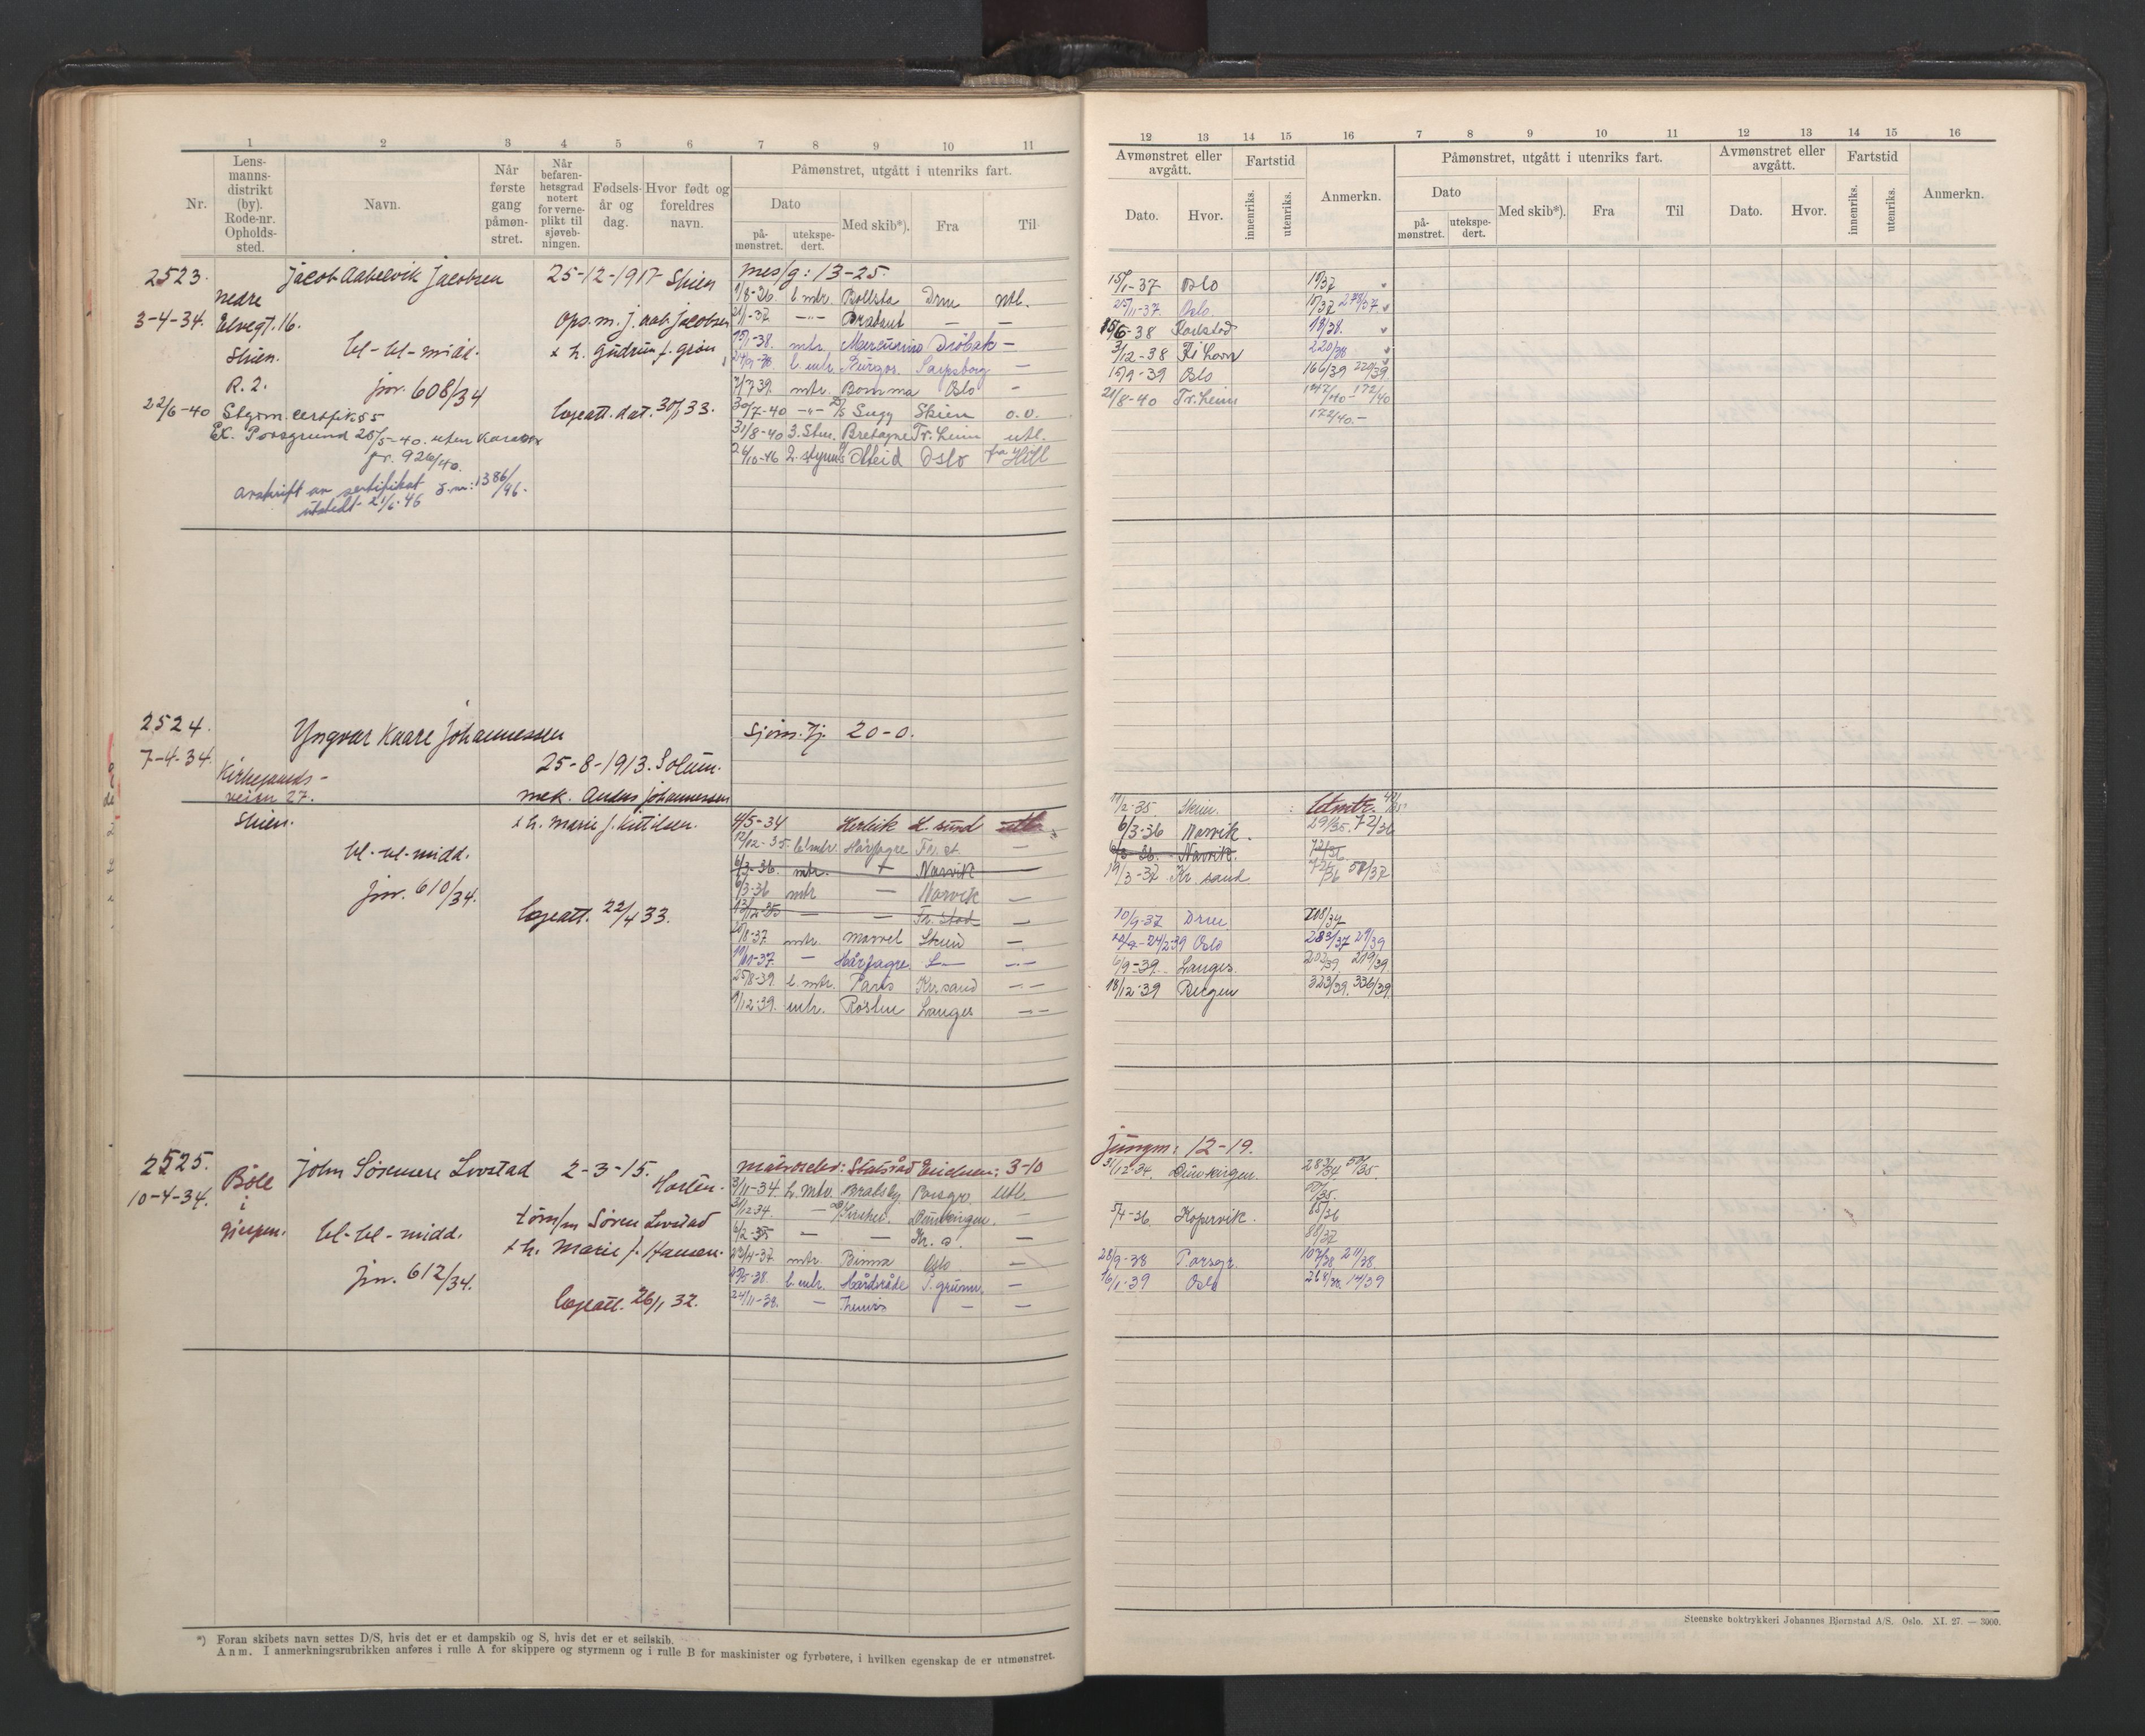 1 2 3 4 5 6 7 8 9 10 11
Nr.
Lens-
manns-
distrikt
(by).
Rode-nr.
Opholds-
sted.
Navn.
Når
første
gang
påmøn-
stret.
Når
befaren-
hetsgrad
notert
for verne-
plikt til
sjøveb-
ningen.
Fødsels-
år og
dag.
Hvor født og
foreldres
navn.
Påmønstret, utgått i utenriks fart.
Dato
på-
mønstret.
utekspe-
dert.
Med skib*).
Fra
Til
2523. Jacob Aabelvik Jacobsen 25-12-1917 Skien mess/g: 13-25.
nedre 1/8-36 l. mtr. Bollsta Drm utl.
3-4-34. Elvegt. 16. Ops.m. J. Aab. Jacobsen 21/1-37 -"- Brabant — —
Skien. bl-bl-midd. x h. Gudrun f. Grøn 15/1-38. mtr. Mercurius Drøbak —
24/9-38. l. mtr. Burgos Sarpsborg —
R. 2. jnr. 608/34 7/7 39. mtr. Bomma Oslo —
22/6-40 Stgm. certfik. 55 legeatt. dat. 30/1 33. 30/7-40 -"- D/S Sugg Skien o.o.
Ex. Porsgrund 25/5-40. uten karakter 31/8-40 3. Stm. Bretagne Tr.heim utl.
jr. 926/40. 26/10-46 2. styrm. Oslo fra
avskrift av sertifikat J.nr: 1386/46.
utstedt 21/6-46
2524. Yngvar Kaare Johannessen sjøm. 20-0.
7-4-34. Kirkegaards- 25-8-1913. Solum.
veien 27. mek. Anders Johannessen
Skien. x h. Marie f. Kittilsen. 4/5-34 Herleik L. sund utl.
bl-bl-midd. 12/12-35 letmtr. Hårfagre Fr.st —
6/3-36. mtr. Narvik
jnr. 610/34. 6/3-36 mtr — Narvik —
legeatt. 22/4 33. — — Fr. stad —
20/8-37 mtr. Marvel Skien —
11/11-37 — Hårfagre —
25/8-39. l. mtr. Paris Kr.sand — —
1/12-39. mtr. Røsten Lauges — —
2525. John Sørmere Livstad 2-3-15. matroselev: Statsråd Erichsen: 3-10
10-4-34. Bøle Horten. 3/11-34 L. Mtr. Bratsby Porsgr. Utl.
i tøm/m Søren Livstad 31/12 34. — Dünkirgen. —
Gjerpen. bl-bl-midd. 6/2-35 — — Kr. a. —
x h. Marie f. Hansen. 23/4-37 mtr. Binna Oslo —
jnr. 612/34. l. mtr. Hårdråde P.grunn. —
legeatt. 26/1 32. 24/11-38. — —
*) Foran skibets navn settes D/S, hvis det er et dampskib og S, hvis det er et seilskib.
Anm. I anmerkningsrubrikken anføres i rulle A for skippere og styrmenn og i rulle B for maskinister og fyrbøtere, i hvilken egenskap de er utmønstret.
12 13 14 15 16 7 8 9 10 11 12 13 14 15 16
Avmønstret eller
avgått.
Dato. Hvor.
Fartstid
innenriks. utenriks.
Anmerkn.
Påmønstret, utgått i utenriks fart.
Dato
på-
mønstret.
utekspe-
dert.
Med skib*). Fra Til
Avmønstret eller
avgått.
Dato. Hvor.
Fartstid
innenriks. utenriks.
Anmerkn.
15/1-37 Oslo
25/11-37. Oslo.
15/6-38 Karlstad
3/12-38 220/38
15/9-39 Oslo 166/39 220/39.
21/8-40 Tr.heim 147/40-172/40
172/40-
11/2-35 Skien. Letmtr.
6/3-36 Narvik. 72/36
6/3-36. Narvik. 72/36
19/3-37 Kr. sand 72/36 58/37
10/9-37 Drm 208/37
24/2-39 Oslo 283/37 29/39
6/9-39. Lauges. 202/39 219/39
18/12-39 Bergen 323/39. 336/39.
Jungm: 12-19.
31/12-34. Dünkirgen. 283/34 50/35.
50/35.
5/4-36 Kopervik. 85/36
88/37
28/9-38 Porsgr. 107/38 211/38.
16/1-39 Oslo 268/38. 14/39
Steenske boktrykkeri Johannes Bjørnstad A/S. Oslo. XI. 27. — 3000.